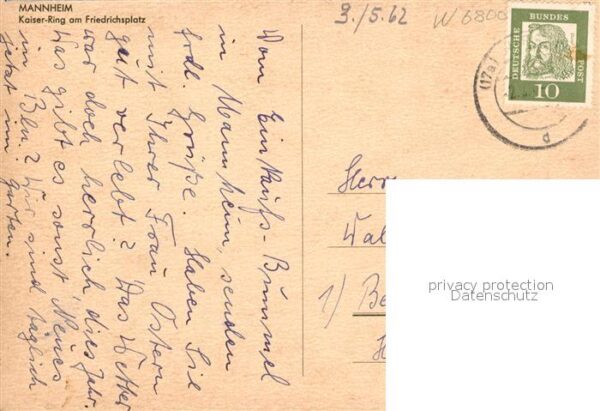 MANNHEIM
Kaiser-Ring am Friedrichsplatz
3./5.62
W 6800
DEUTSCHE BUNDES POST
10
(17a)
Vom Einkaufs-Bummel
in Mannheim, senden
frdl. Grüße. Haben Sie
mit Ihrer Frau Ostern
gut verlebt? Das Wetter
war doch herrlich dies Jahr.
Was gibt es sonst Neues
in Bln.? Wir sind täglich
jetzt im Garten.
Herrn
Wal
1) Be
privacy protection
Datenschutz